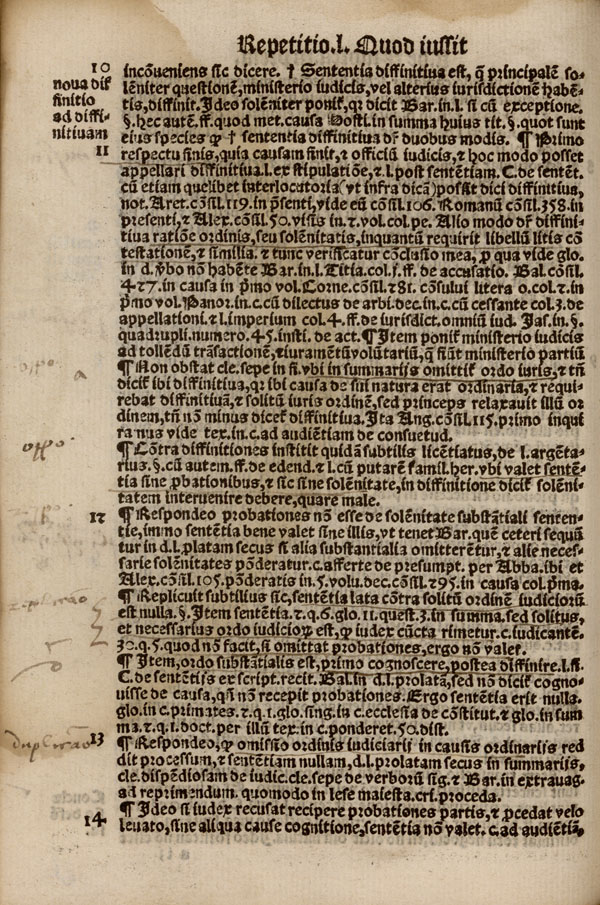 Repetitio.l. Quod iussit
10
nova dif
finitio
ad diffi-
nitiuam
11
incōueniens sic dicere. † Sententia diffinitiua est, q̄ principalē so-
lēniter questionē, ministerio iudicis, vel alterius iurisdictionē habē-
tis, diffinit. Ideo solēniter ponit, qr dicit Bar. in l. si cū exceptione.
§. hec autē. ff. quod met. causa Hosti. in summa huius tit. §. quot sunt
eius species q̄ † sententia diffinitiua dr̄ duobus modis. ¶ Primo
respectu finis, quia causam finit, ⁊ officiū iudicis, ⁊ hoc modo posset
appellari diffinitiua. l. ex stipulatiōe, ⁊ l. post sentētiam. C. de sentēt.
cū etiam quelibet interlocutoria (vt infra dicā) possit dici diffinitiua,
not. Aret. cōsil. 119. in p̄senti, vide eū cōsil. 106. Romanū cōsil. 358. in
presenti, ⁊ Alex. cōsil. 50. visis in. 2. vol. col. pe. Alio modo dr̄ diffini-
tiua ratiōe ordinis, seu solēnitatis, inquantū requirit libellū litis cō
testationē, ⁊ similia. ⁊ tunc verificatur cōclusio mea, p̄ qua vide glo.
in d. v̄bo nō habēte Bar. in l. Titia. col. f. ff. de accusatio. Bal. cōsil.
4 ⁊ 7. in causa in p̄mo vol. Corne. cōsil. ⁊ 81. cōsului litera o. col. 2. in
p̄mo vol. Panor. in c. cū dilectus de arbi. dec. in c. cū cessante col. 3. de
appellationi. ⁊ l. imperium col. 4. ff. de iurisdict. omniū iud. Jas. in §.
quadrupli. numero. 45. insti. de act. ¶ Item ponit ministerio iudicis
ad tollendū trāsactionē, ⁊ iuramētū volūtariū, q̄ fiūt ministerio partiū
¶ Non obstat cle. sepe in fi. vbi in summarijs omittit ordo iuris, ⁊ tn̄
dicit ibi diffinitiua, qr ibi causa de sui natura erat ordinaria, ⁊ requi-
rebat diffinitiuā, ⁊ solitū iuris ordinē, sed princeps relaxauit illū or
dinem, tn̄ nō minus dicet diffinitiua. Ita Ang. cōsil. 115. primo inqui
ra nus vide tex. in. c. ad audiētiam de consuetud.
¶ Cōtra diffinitiones institit quidā subtilis licētiatus, de l. argēta-
rius. §. cū autem. ff. de edend. ⁊ l. cū putarē famil. her. vbi valet sentē-
tia sine p̄bationibus, ⁊ sic sine solēnitate, in diffinitione dicit solēni-
tatem interuenire debere, quare male.
12
¶ Respondeo probationes nō esse de solēnitate substātiali senten-
tie, immo sentētia bene valet sine illis, vt tenet Bar. quē ceteri sequū
tur in d. l. p̄latam secus si alia substantialia omitterētur, ⁊ alie neces-
sarie solēnitates pōderātur. c. afferte de presumpt. per Abba. ibi et
Alex. cōsil. 105. pōderatis in. 5. volu. dec. cōsil. ⁊ 95. in causa col. p̄ma.
¶ Replicuit subtilius sic, sentētia lata cōtra solitū ordinē iudiciorū
est nulla. §. Item sentētia. 2. q. 6. glo. 11. quest. 3. in summa. sed solitus,
et necessarius ordo iudicioꝝ est, q̄ iudex cūcta rimetur. c. iudicantē.
30. q. 5. quod nō facit, si omittat probationes, ergo nō valet.
¶ Item, ordo substātialis est, primo cognoscere, postea diffinire. l. ff.
C. de sentētijs ex script. recit. Bal. in d. l. prolatā, sed nō dicit cogno-
uisse de causa, qn̄ nō recepit probationes. Ergo sentētia erit nulla.
glo. in c. primates. 2. q. 1. glo. sing. in c. ecclesia de cōstitut. ⁊ glo. in sum
ma. 2. q. 1. doct. per illū tex. in c. ponderet. 50. dist.
13
¶ Respondeo, q̄ omissio ordinis iudiciarij in causis ordinarijs red
dit processum, ⁊ sentētiam nullam, d. l. prolatam secus in summarijs,
cle. dispēdiosam de iudic. cle. sepe de verborū sig. ⁊ Bar. in extrauag.
ad reprimendum. quomodo in lese maiesta. cri. proceda.
14
¶ Ideo si iudex recusat recipere probationes partis, ⁊ p̄cedat velo
leuato, sine aliqua cause cognitione, sentētia nō valet. c. ad audiētiā,